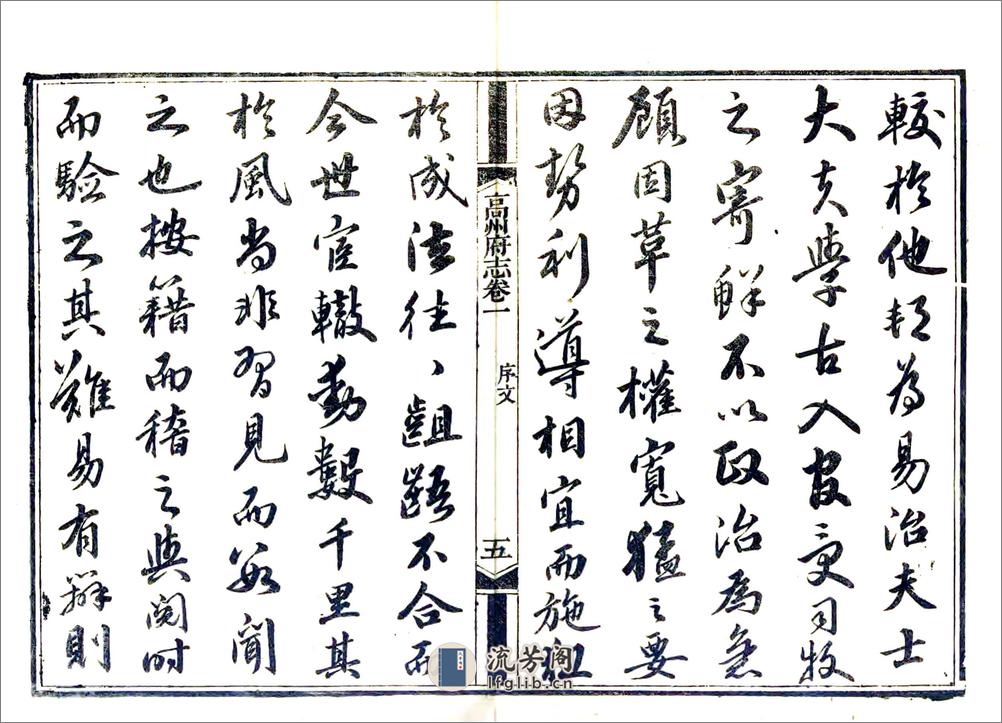 較於他郡為易治夫士
大夫學古入官受司牧
之寄鮮不以政治為急
顧因革之權寬猛之要
因勢利導相宜而施狃
高州府志卷一
序文
五
於成法往、齟齬不合而
今世宦轍動數千里其
於風尚非習見而聞
之也按籍而稽之與閱時
而驗之其難易有辨則
流芳阁
lfglib.cn